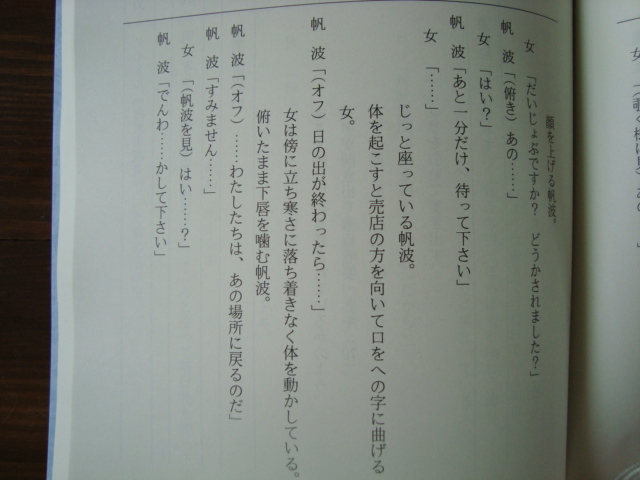 顔を上げる帆波。
女 「だいじょぶですか？ どうかされました？」
帆 波「（俯き）あの……」
女 「はい？」
帆 波「あと一分だけ、待って下さい」
女 「……」
じっと座っている帆波。
体を起こすと売店の方を向いて口をへの字に曲げる
女。
帆 波「（オフ）日の出が終わったら……」
女は傍に立ち寒さに落ち着きなく体を動かしている。
俯いたまま下唇を噛む帆波。
帆 波「（オフ）……わたしたちは、あの場所に戻るのだ」
帆 波「すみません……」
女 「（帆波を見）はい……？」
帆 波「でんわ……かして下さい」